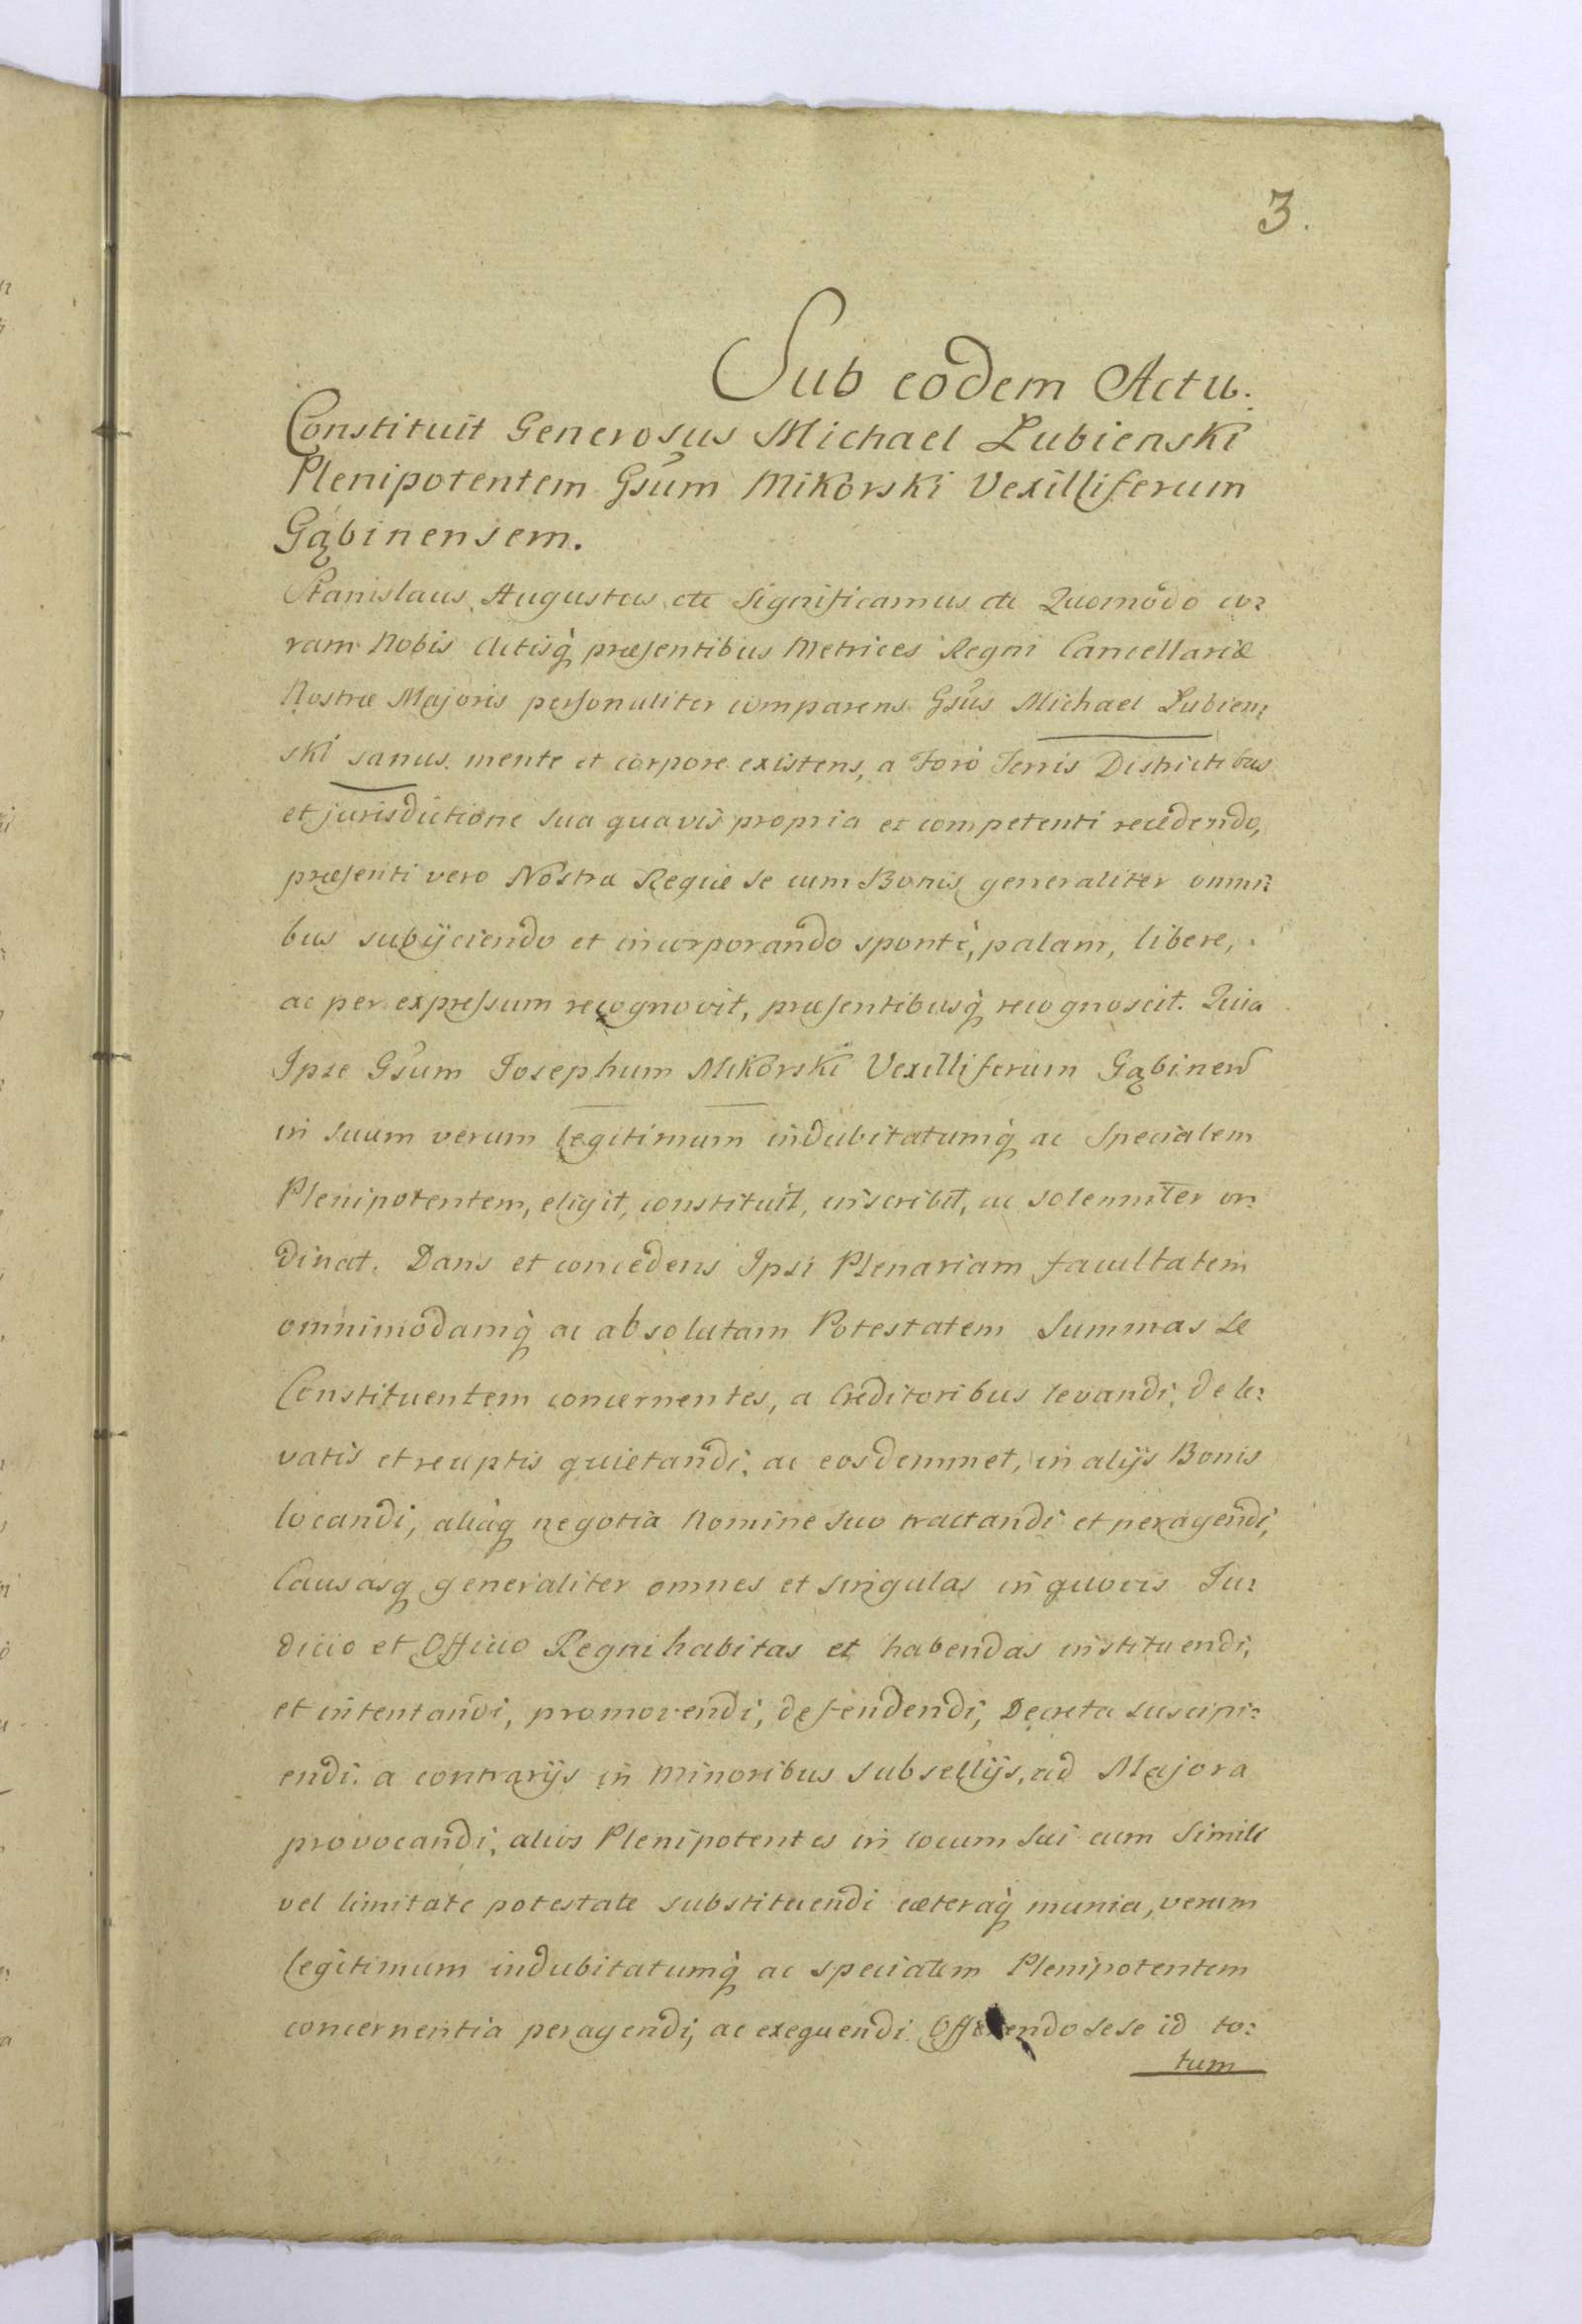 3.
Sub eodem Actu.
Constituit Generosus Michael Lubienski
Plenipotentem Gsum Mikorski Vexilliferum
Gąbinensem.
Stanislaus Augustus etc Significamus etc Quomodo co:
ram Nobis Actisq̀ præsentibus Metrices Regni Cancellariæ
Nostræ Majoris personaliter comparens Gsus Michael Lubien:
ski sanus mente et corpore existens, a Foro Terris Districtibus
et jurisdictione sua quavis propria et competenti recedendo,
præsenti vero Nostræ Regiæ se cum Bonis generaliter omni:
bus subijciendo et incorporando spontè, palam, libere,
ac per expressum recognovit, præsentibusq̀ recognoscit. Quia
Ipse Gsum Josephum Mikorski Vexilliferum Gąbinen
in suum verum legitimum indubitatumq̀ ac Specialem
Plenipotentem, eligit, constituit, inscribit, ac solemniter or:
dinat. Dans et concedens Ipsi Plenariam facultatem
omnimodamq̀ ac absolutam Potestatem Summas Se
Constituentem concernentes, a Creditoribus levandi, de le:
vatis et receptis quietandi, ac eosdemmet, in alijs Bonis
locandi, aliaq̀ negotia Nomine suo tractandi et peragendi,
Causasq generaliter omnes et singulas in quovis Ju:
dicio et Officio Regni habitas et habendas instituendi,
et intentandi, promovendi, defendendi, Decreta suscipi:
endi. a contrarijs in Minoribus Subsellijs, ad Majora
provocandi, alios Plenipotentes in locum Sui cum Simili
vel limitate potestate substituendi cæteraq̀ munia, verum
legitimum indubitatumq̀ ac specialem Plenipotentem
concernentia peragendi, ac exequendi. Offerendo sese id to:
tum